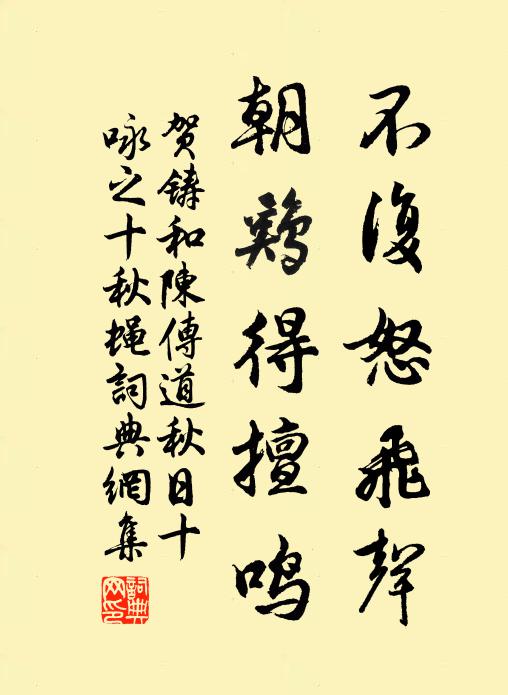 不復怒飛聲
朝鷄得擅鳴
贺鑄和陳傳道秋日十
咏之十秋蝇詞典網集
詞典网印